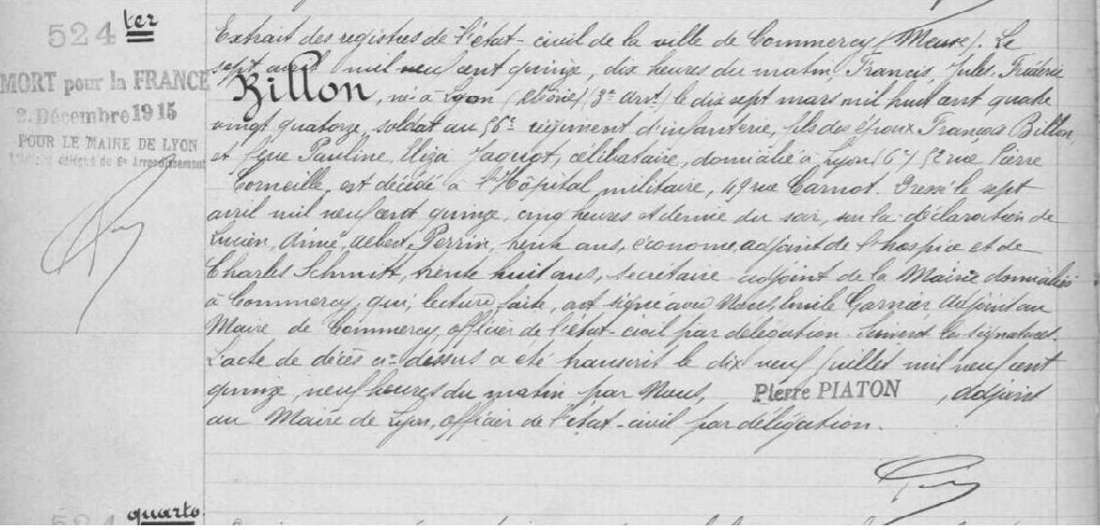 524 ter
MORT pour la FRANCE
2 Décembre 1915
POUR LE MAIRE DE LYON
Extrait des registres de l'état-civil de la ville de Commercy (Meuse). Le
sept avril mil neuf cent quinze, dix heures du matin, Francis, Jules, Frédéric
Billon, né à Lyon (Rhône) (3e arrt) le dix sept mars mil huit cent quatre
vingt quatorze, soldat au 56e régiment d'infanterie, fils des époux François Billon,
et feue Pauline, Eliza Jaquot, célibataire, domicilié à Lyon (6e) 52 rue Pierre
Corneille, est décédé à l'Hôpital militaire, 49 rue Carnot. Dressé le sept
avril mil neuf cent quinze, cinq heures et demie du soir, sur la déclaration de
Lucien, Aimé, Albert Perrin, trente ans, économe adjoint de l'hospice et de
Charles Schmitt, trente huit ans, secrétaire adjoint de la Mairie domiciliés
à Commercy, qui, lecture faite, ont signé avec Nous, Emile Garnier, Adjoint au
Maire de Commercy, officier de l'état-civil par délégation. Suivent les signatures.
L'acte de décès ci-dessus a été transcrit le dix neuf juillet mil neuf cent
quinze, neuf heures du matin par Nous, Pierre PIATON, adjoint
au Maire de Lyon, officier de l'état-civil par délégation.
524 quarto